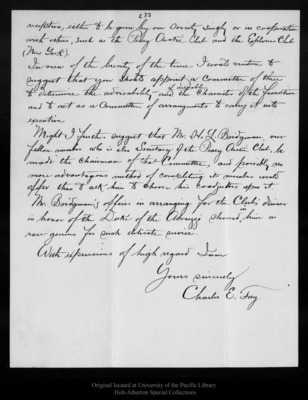 reception, either to be given by our Society singly or in cooperation
with others, such as the Peary Arctic Club and the Explorers Club
(New York).
In view of the brevity of the time I would venture to
suggest that you appoint a committee of three
to determine the advisability and the character of the function
and to act as a Committee of arrangements to carry it into
execution.
Might I further suggest that Mr. H. L. Bridgman our
fellow member who is the Secretary of the Peary Arctic Club, be
made the chairman of that Committee, and possibly no
more advantageous method of completing its number would
offer than to ask him to choose his coadjutors upon it.
Mr. Bridgman's offices in arranging for the Club's dinner
in honor of the Duke of the Abruzzi showed in him a
rare genius for such delicate service.
With expressions of high regard I am
Yours sincerely
Charles E. Fay
Original located at University of the Pacific Library
Holt-Atherton Special Collections